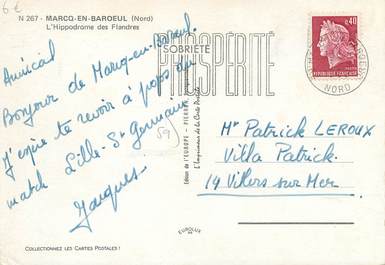 6€
N 267 - MARCQ-EN-BAROEUL (Nord)
L'Hippodrome des Flandres
Amical
Bonjour de Marcq-en-Baroeul.
J'espère te revoir à propos du
match Lille-St Germain
Jacques
59
SOBRIÉTÉ
PROSPÉRITÉ
0,40
REPUBLIQUE FRANÇAISE
NORD
Mr Patrick LEROUX
Villa Patrick
14 Villers sur Mer
EUROLUX
COLLECTIONNEZ LES CARTES POSTALES !